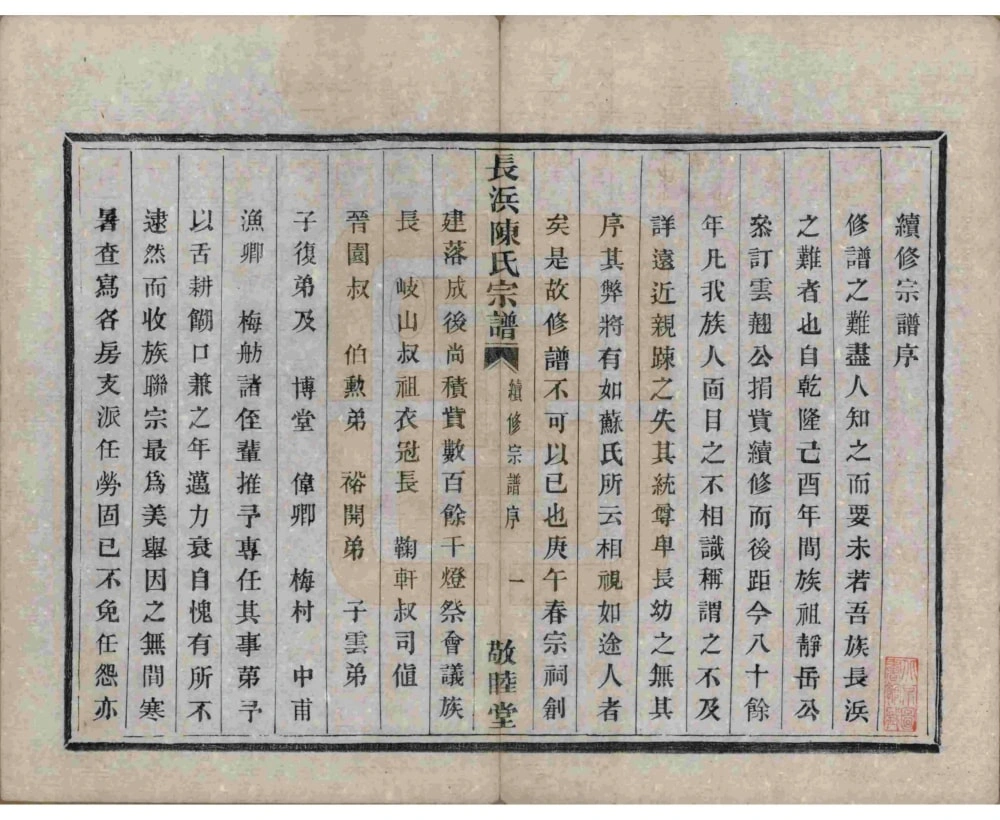 續修宗譜序
修譜之難盡人知之而要未若吾族長浜
之難者也自乾隆己酉年間族祖靜岳公
叅訂雲翹公捐貲續修而後距今八十餘
年凡我族人面目之不相識稱謂之不及
詳遠近親踈之失其統尊卑長幼之無其
序其弊將有如蘇氏所云相視如途人者
矣是故修譜不可以已也庚午春宗祠創
長浜陳氏宗譜 續修宗譜序 一 敬睦堂
建落成後尚積貲數百餘千燈祭會議族
長 岐山叔祖衣冠長 鞠軒叔司値
晉園叔 伯勲弟 裕開弟 子雲弟
子復弟及 博堂 偉卿 梅村 中甫
漁卿 梅舫諸侄輩推予專任其事第予
以舌耕餬口兼之年邁力衰自愧有所不
逮然而收族聯宗最爲美舉因之無間寒
暑查寫各房支派任勞固已不免任怨亦